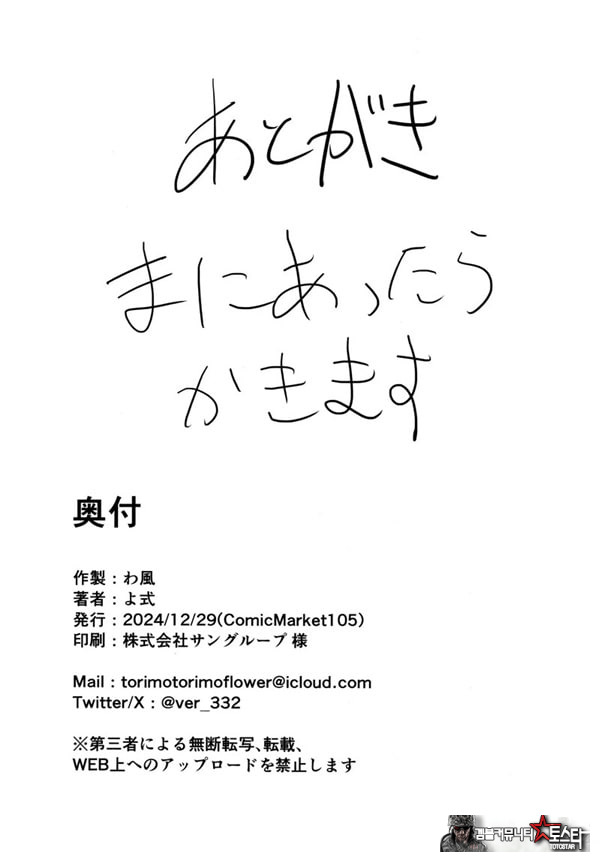 あとがき
まにあったら
かきます
奥付
作製：わ風
著者：よ式
発行：2024/12/29(ComicMarket105)
印刷：株式会社サングループ 様
Mail : torimotorimoflower@icloud.com
Twitter/X : @ver_332
※第三者による無断転写、転載、
WEB上へのアップロードを禁止します
검블커뮤니티 토스타
TOTOSTAR